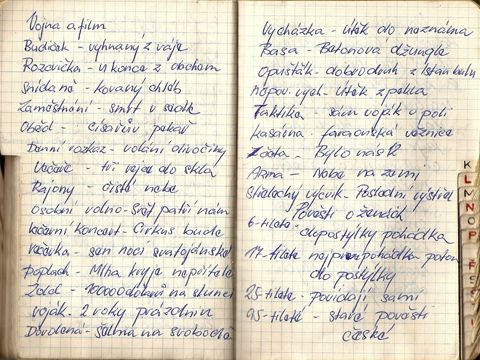 Vojna a film
Budíček - vyhnaný z ráje
Rozcvička - u konce z dechem
Snídaně - kovaný chléb
Zaměstnání - smrt v sedle
Oběd - císařův pekař
Denní rozkaz - volání divočiny
Večeře - tři vejce do skla
Rajony - čisté nebe
osobní volno - Svět patří nám
večerní koncert - Cirkus bude
večerka - sen noci svatojánské
Poplach - Mlha kryje nepřítele
Žold - 1000000dolarů na slunci
voják - 2 roky prázdnin
Dovolená - šelma na svobodě
Vycházka - Útěk do neznáma
Basa - Betonova džungle
Opušťák - dobrodruh z Istanbulu
Útěk z pekla
Taktika - sám voják v poli
kasárna - faraonská věznice
Četa - Bylo nás
Arma - Nebe na zemi
Střelecký výcvik - Poslední výstřel
Pověsti o ženách
6-tiletá - do postýlky pohádka
17-tiletá nejprve pohádka potom
do postýlky
25-tileté - povídají sami
95-tileté - staré pověsti
české
K
L
M
N
O
P